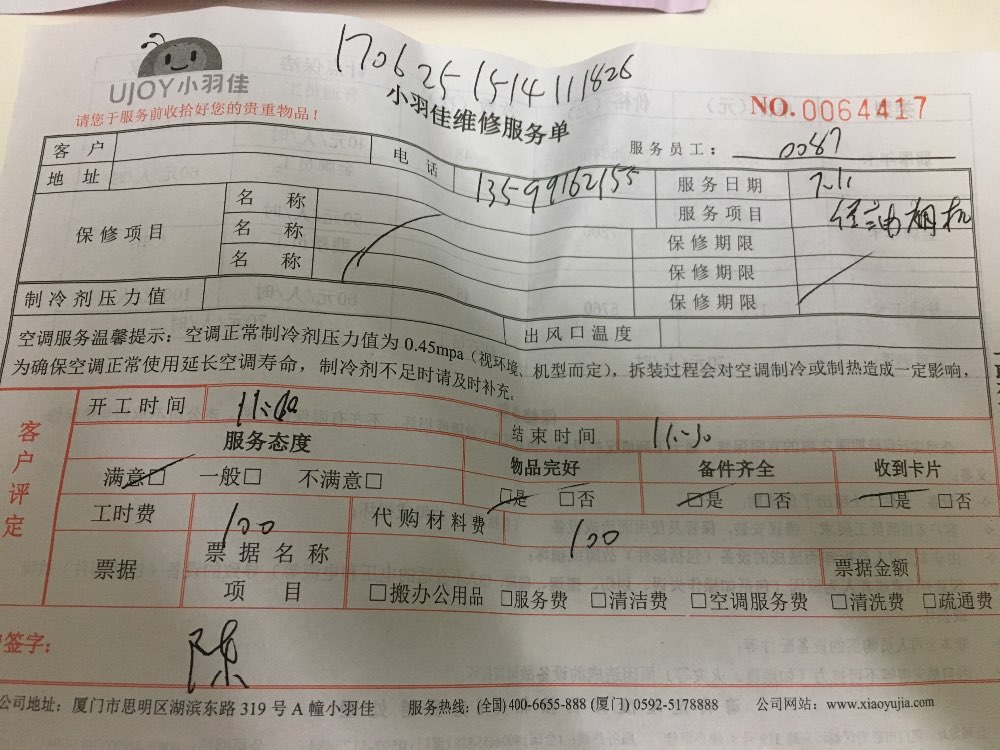 170625 1514111826
UJOY小羽佳
请您于服务前收拾好您的贵重物品！
小羽佳维修服务单
NO.0064417
服务员工： 0087
客户 电话 13599162155
地址 服务日期 7.11
保修项目 名称 服务项目 油烟机
名称 保修期限
名称 保修期限
保修期限
制冷剂压力值 出风口温度
空调服务温馨提示：空调正常制冷剂压力值为 0.45mpa（视环境、机型而定），拆装过程会对空调制冷或制热造成一定影响，
为确保空调正常使用延长空调寿命，制冷剂不足时请及时补充。
客户评定
开工时间 结束时间
服务态度 物品完好 备件齐全 收到卡片
满意□ 一般□ 不满意□ □是 □否 □是 □否 □是 □否
工时费 100 代购材料费 100
票据 票据名称 票据金额
项目 □搬办公用品 □服务费 □清洁费 □空调服务费 □清洗费 □疏通费
签字： 陈
公司地址：厦门市思明区湖滨东路 319 号 A 幢小羽佳 服务热线：(全国) 400-6655-888 (厦门) 0592-5178888 公司网站：www.xiaoyujia.com